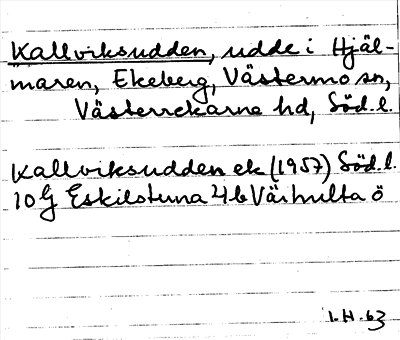 Kallviksudden, udde i Hjäl-
maren, Ekeberg, Västermo sn,
Västerrekarne hd, Söd.l.
Kallviksudden ek (1957) Söd.l.
10 G Eskilstuna 4b Väshulta ö
I.H. 63